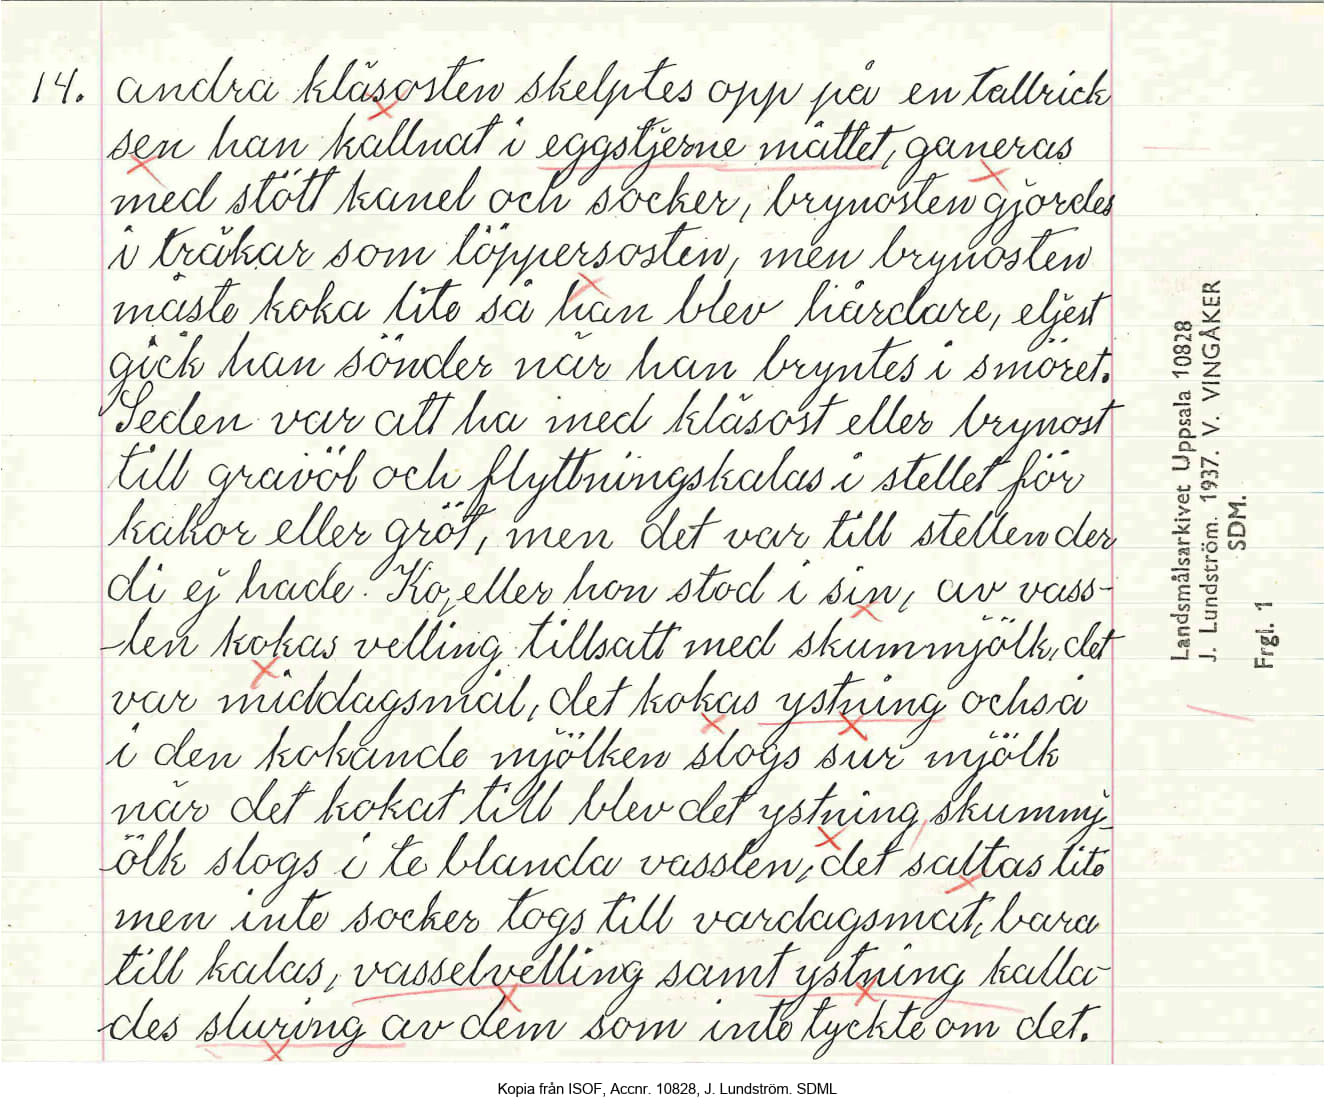 14. andra kläsosten skelptes opp på en tallrick
sen han kallnat i eggstjerne måttet, ganeras
med stött kanel och socker, brynosten gjordes
i träkar som löppersosten, men brynosten
måste koka lite så han blev hårdare, eljest
gick han sönder när han bryntes i smöret.
Seden var att ha med kläsost eller brynost
till gravöl och flyttningskalas i stellet för
kakor eller gröt, men det var till stellen der
di ej hade Ko, eller hon stod i sin, av vass-
-len kokas velling tillsatt med skummjölk, det
var middagsmål, det kokas ystning också
i den kokande mjölken slogs sur mjölk
när det kokat till blev det ystning, skummj-
-ölk slogs i te blanda vasslen, det saltas lite
men inte socker togs till vardagsmat, bara
till kalas, vasselvelling samt ystning kalla-
-des sluring av dem som inte tyckte om det.
Landsmålsarkivet Uppsala 10828
J. Lundström. 1937. V. VINGÅKER
SDM.
Frgl. 1
Kopia från ISOF, Accnr. 10828, J. Lundström. SDML